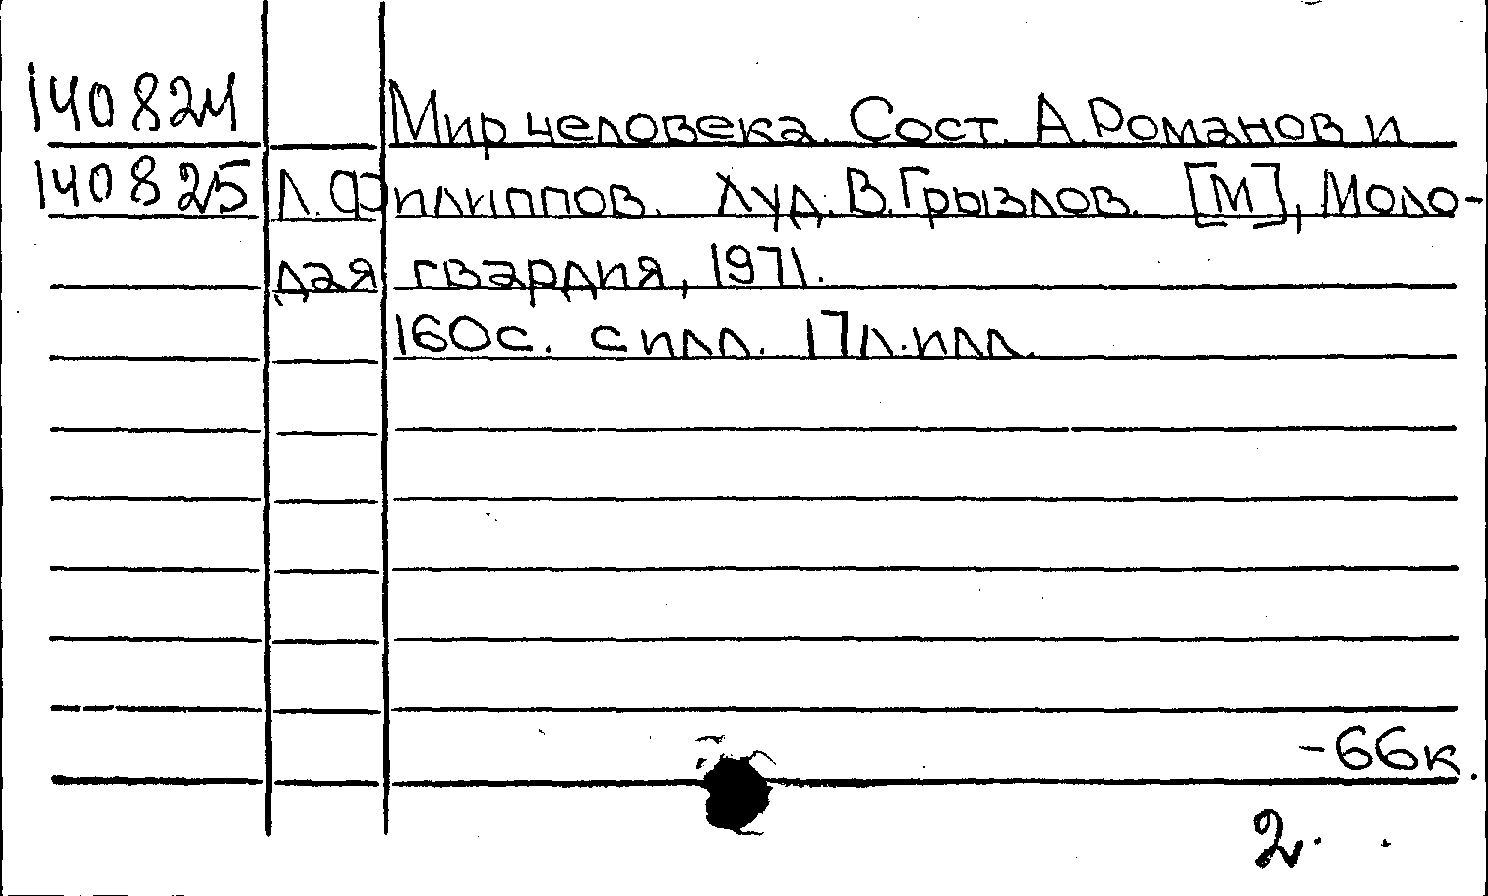 140824 Мир человека. Сост. А.Романов и
140825 Л.Филиппов. Худ. В.Грызлов. [М], Моло-
дая гвардия, 1971.
160с. с илл. 17л.илл.
-66к.
2.